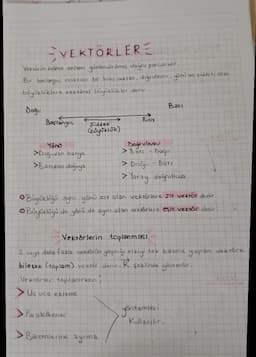 VEKTÖRLER
Bir başlangıç noktası bir bitiş noktası, doğrultusu, yönü ve şiddeti olan
büyüklüklere vektörel büyüklükler denir
Doğu Batı
Başlangıç Şiddet Bitiş
(büyüklük)
Yönü Doğrultusu
> Doğudan batıya > Batı - Doğu
> Batıdan doğuya > Doğu - Batı
> Yatay doğrultuda
Büyüklüğü aynı, yönü zıt olan vektörlere zıt vektör denir
Büyüklüğü de yönü de aynı olan vektörlere eşit vektör denir
Vektörlerin toplanması
2 veya daha fazla vektörün yaptığı etkiyi tek başına yapan vektöre
bileşke (toplam) vektör denir. R şeklinde gösterilir.
Vektörler toplanırken;
> Uç uca ekleme
> Paralelkenar yöntemleri
Kullanılır.
> Bileşenlerine ayırma